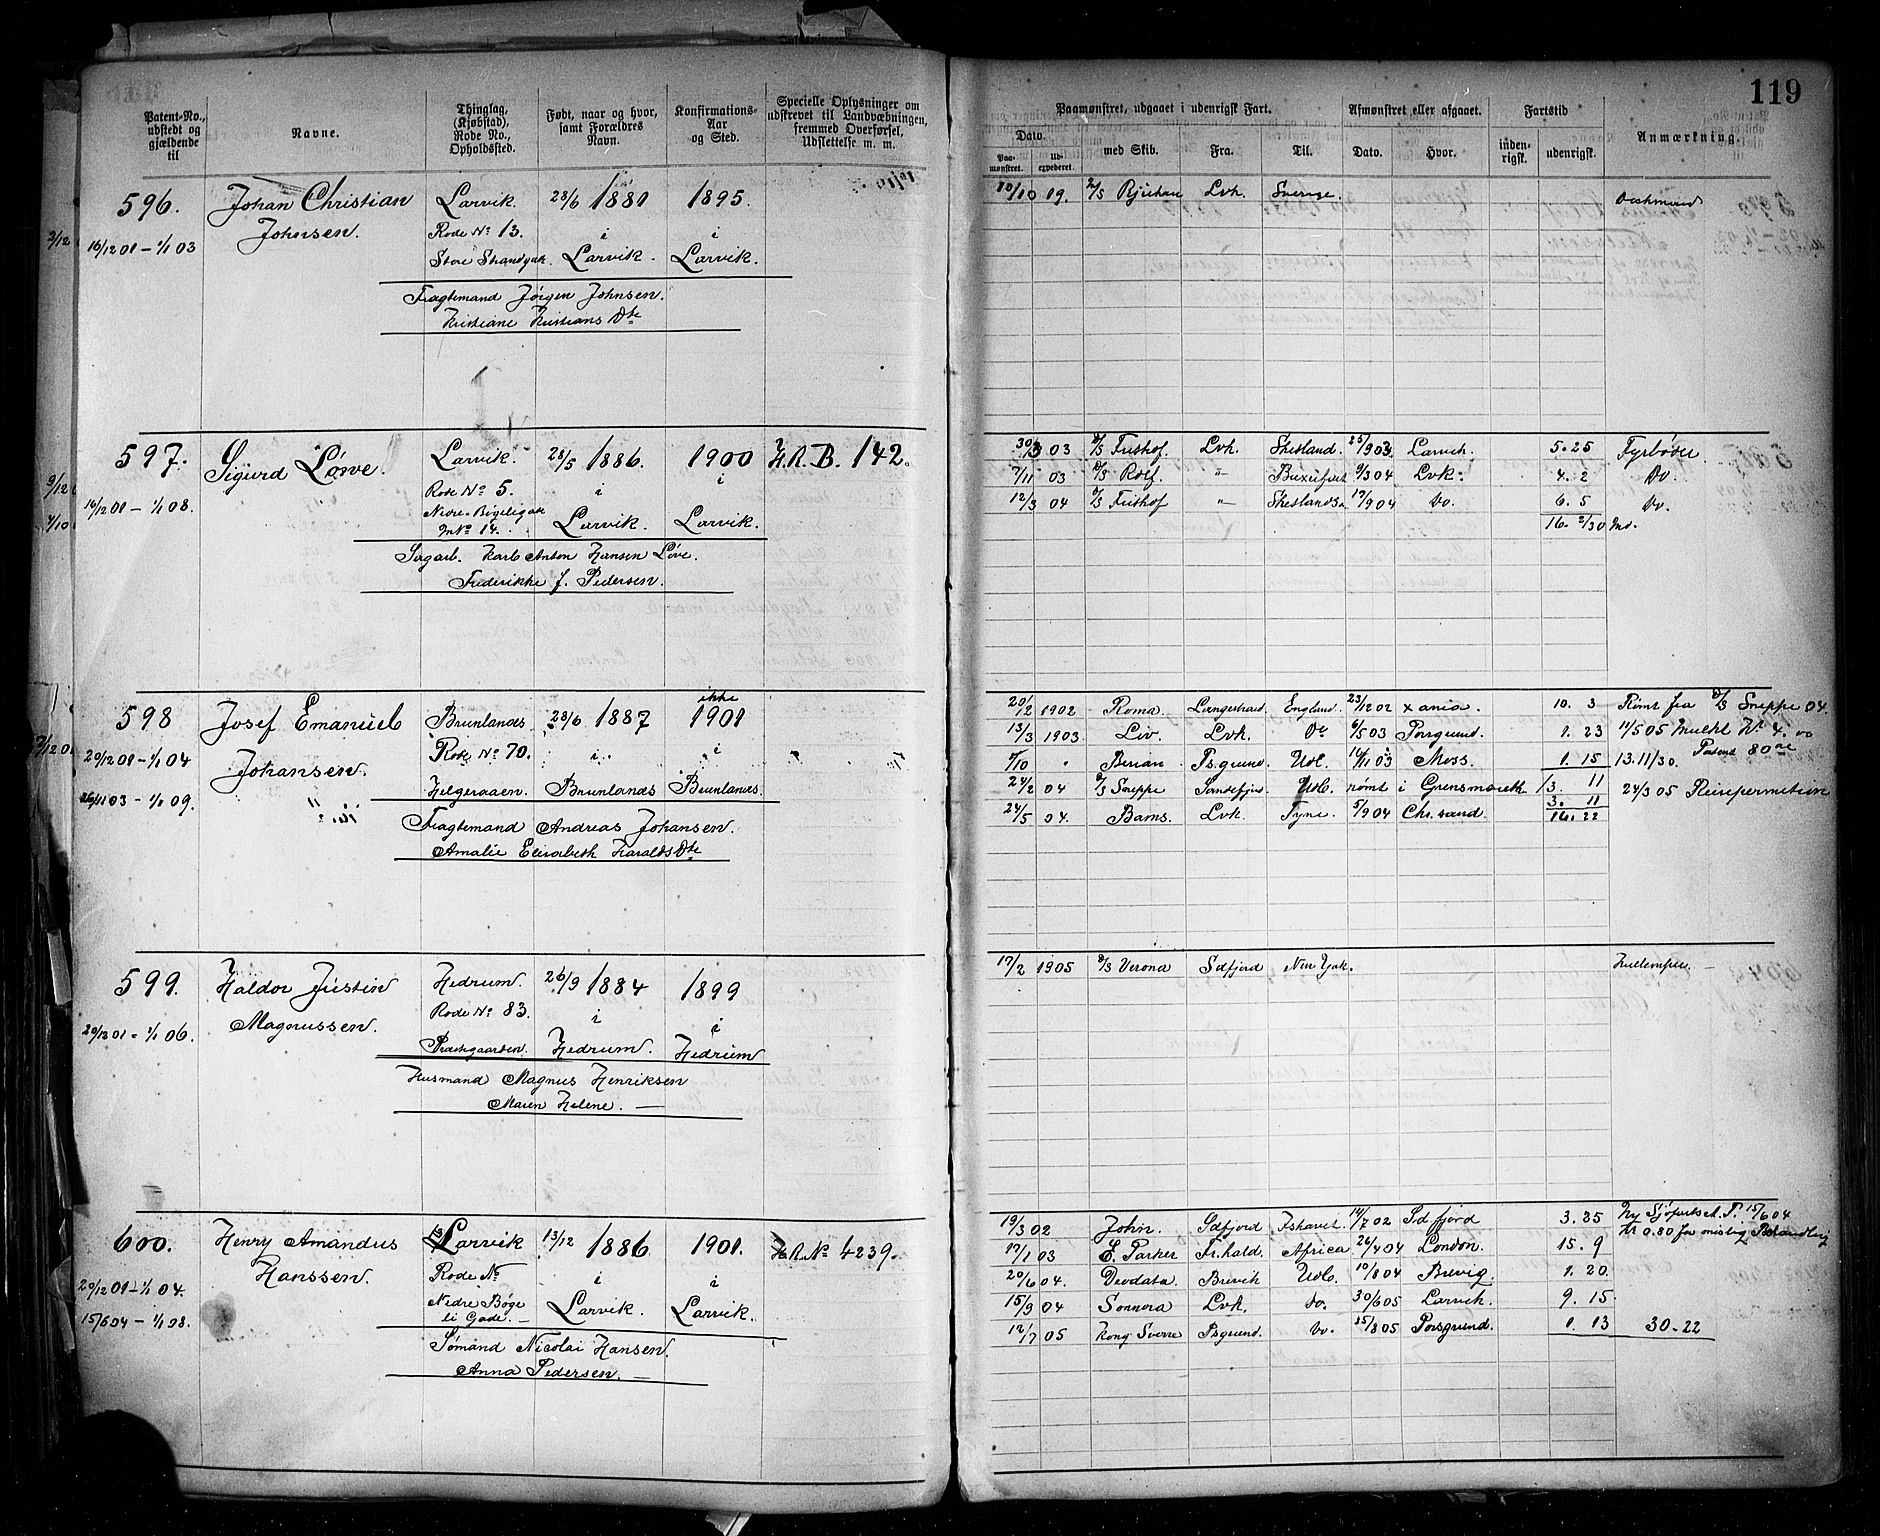 119
Patent-No., udstedt og gjældende til
Navne.
Thinglag, (Kjøbstad), Rode No., Opholdssted.
Født, naar og hvor, samt Forældres Navn.
Konfirmations-Aar og Sted.
Specielle Oplysninger om udskrevet til Landvæbningen, fremmed Overførsel, Udslettelse m. m.
Paamønstret, udgaaet i udenrigsk Fart.
Afmønstret eller afgaaet.
Fartstid
Anmærkning.
Dato.
Paamønstret. Udexpederet. med Skib. Fra. Til. Dato. Hvor. indenrigsk. udenrigsk.
596. Johan Christian Larvik 28/6 1881 1895.
16/12 01 – 1/1 03 Johnsen. Rode No 13. i i
Store Strandgade. Larvik. Larvik.
Fragtemand Jørgen Johnsen.
Kristiane Kristians Dtr
10/10 19. D/S Rjukan Lvk Sverige.
597. Sigurd Løwe. Larvik. 28/5 1886. 1900 H.R.B. 142.
16/12 01 – 1/1 08. Rode No 5. i i
Nedre Bøgeligade Larvik. Larvik.
M.No 14.
Sagarb. Karl Anton Hansen Løve.
Frederikke f. Pedersen.
30/3 03 D/S Frithof Lvk Shetland. 25/9 03 Larvik. 5. 25 Fyrbøder
7/11 03 D/S Rolf. " 9/3 04 Lvk. 4. 2 Do.
12/3 04 D/S Frithof " 17/9 04 Do. 6. 5 Do.
16. 2/30 Md.
598 Josef Emanuel Brunlands 23/6 1887 ikke 1901
20/12 01 – 1/1 04 Johansen. Rode No 70. i i
26/11 03 – 1/1 09. Helgeroaen. Brunlands Brunlands.
Fragtemand Andreas Johansen.
Amalie Elisabeth Haralds Dtr
20/2 1902 Roma. Langestrand England. 23/12 02 Xania. 10. 3 Rømt fra D/S Sneppe 04.
13/3 1903. Liv. Lvk. Do 6/5 03 Porsgrund. 1. 23 11/5 05 Mulkt Kr 4. 00
Patent 80 øre
Berian Psgrund. Udl. 14/11 03 Moss. 1. 15 13. 11/30.
24/2 04 D/S Sneppe Sandefjord Udl. rømt i Grensmouth /3. 11 24/3 05 Reisepermition
24/5 04. Bams. Lvk. Tyne. 5/9 04 Chr. sand. 3. 11
16. 22
599. Haldor Justin Hedrum. 26/9 1884 1899
20/12 01 – 1/1 06. Magnussen. Rode No 83. i i
Præstegaarden. Hedrum. Hedrum
Husmand Magnus Henriksen
Maren Helene. —
17/2 1905 D/S Verona Sdfjord New York. Kullemper.
600. Henry Amandus Larvik 13/12 1886 1901. H.R.No 4239.
20/12 01 – 1/1 04. Hanssen. Rode No i i
15/6 04 – 1/1 08. Nedre Bøge Larvik. Larvik.
li Gade. —
Sømand Nicolai Hansen.
Anna Pedersen. —
19/3 02 John. Sdfjord Ishavet. 14/7 02 Sdfjord 3. 25 Ny Sjøfartsbok 15/6 04
Kr 0.80 for mislig Behandling
17/1 03 E. Parker Fr.hald. Africa 26/4 04 London. 15. 9
20/6 04. Deodata. Brevik Udl. 10/8 04 Brevig. 1. 20.
15/9 04 Sonnora Lvk. Do. 30/6 05 Larvik. 9. 15.
12/7 05 Kong Sverre Psgrund. Do 25/8 05 Porsgrund. 1. 13 30. 22